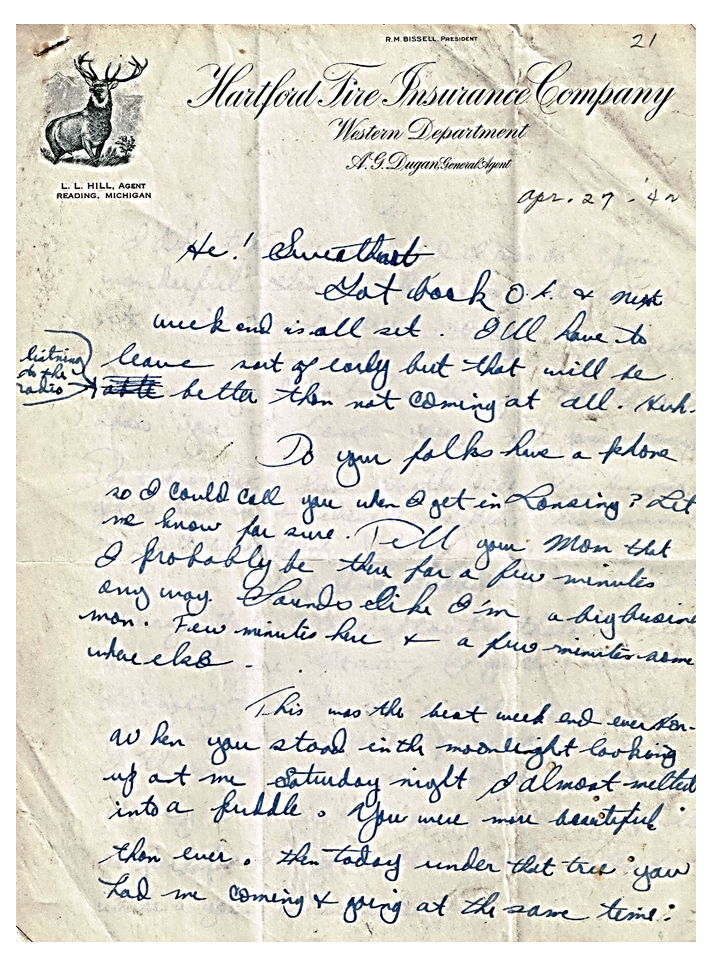 R.M. BISSELL, PRESIDENT
21
Hartford Fire Insurance Company
Western Department
A.G. Dugan General Agent
L. L. HILL, AGENT
READING, MICHIGAN
Apr. 27 - '42
He! Sweethart
Got back O.K. & next
week end is all set. I'll have to
leave sort of early but that will be
listning
to the
radio
better then not coming at all. Huh.
Do your folks have a phone
so I could call you when I get in Lansing? Let
me know for sure. Tell your Mom that
I probably be there for a few minutes
any way. Sounds like I'm a big busine
man. Few minutes here & a few minutes some
where else.
This was the best week end ever Hon-
when you stood in the moonlight looking
up at me Saturday night I almost melted
into a puddle. You were more beautiful
than ever. then today under that tree you
had me coming & going at the same time.